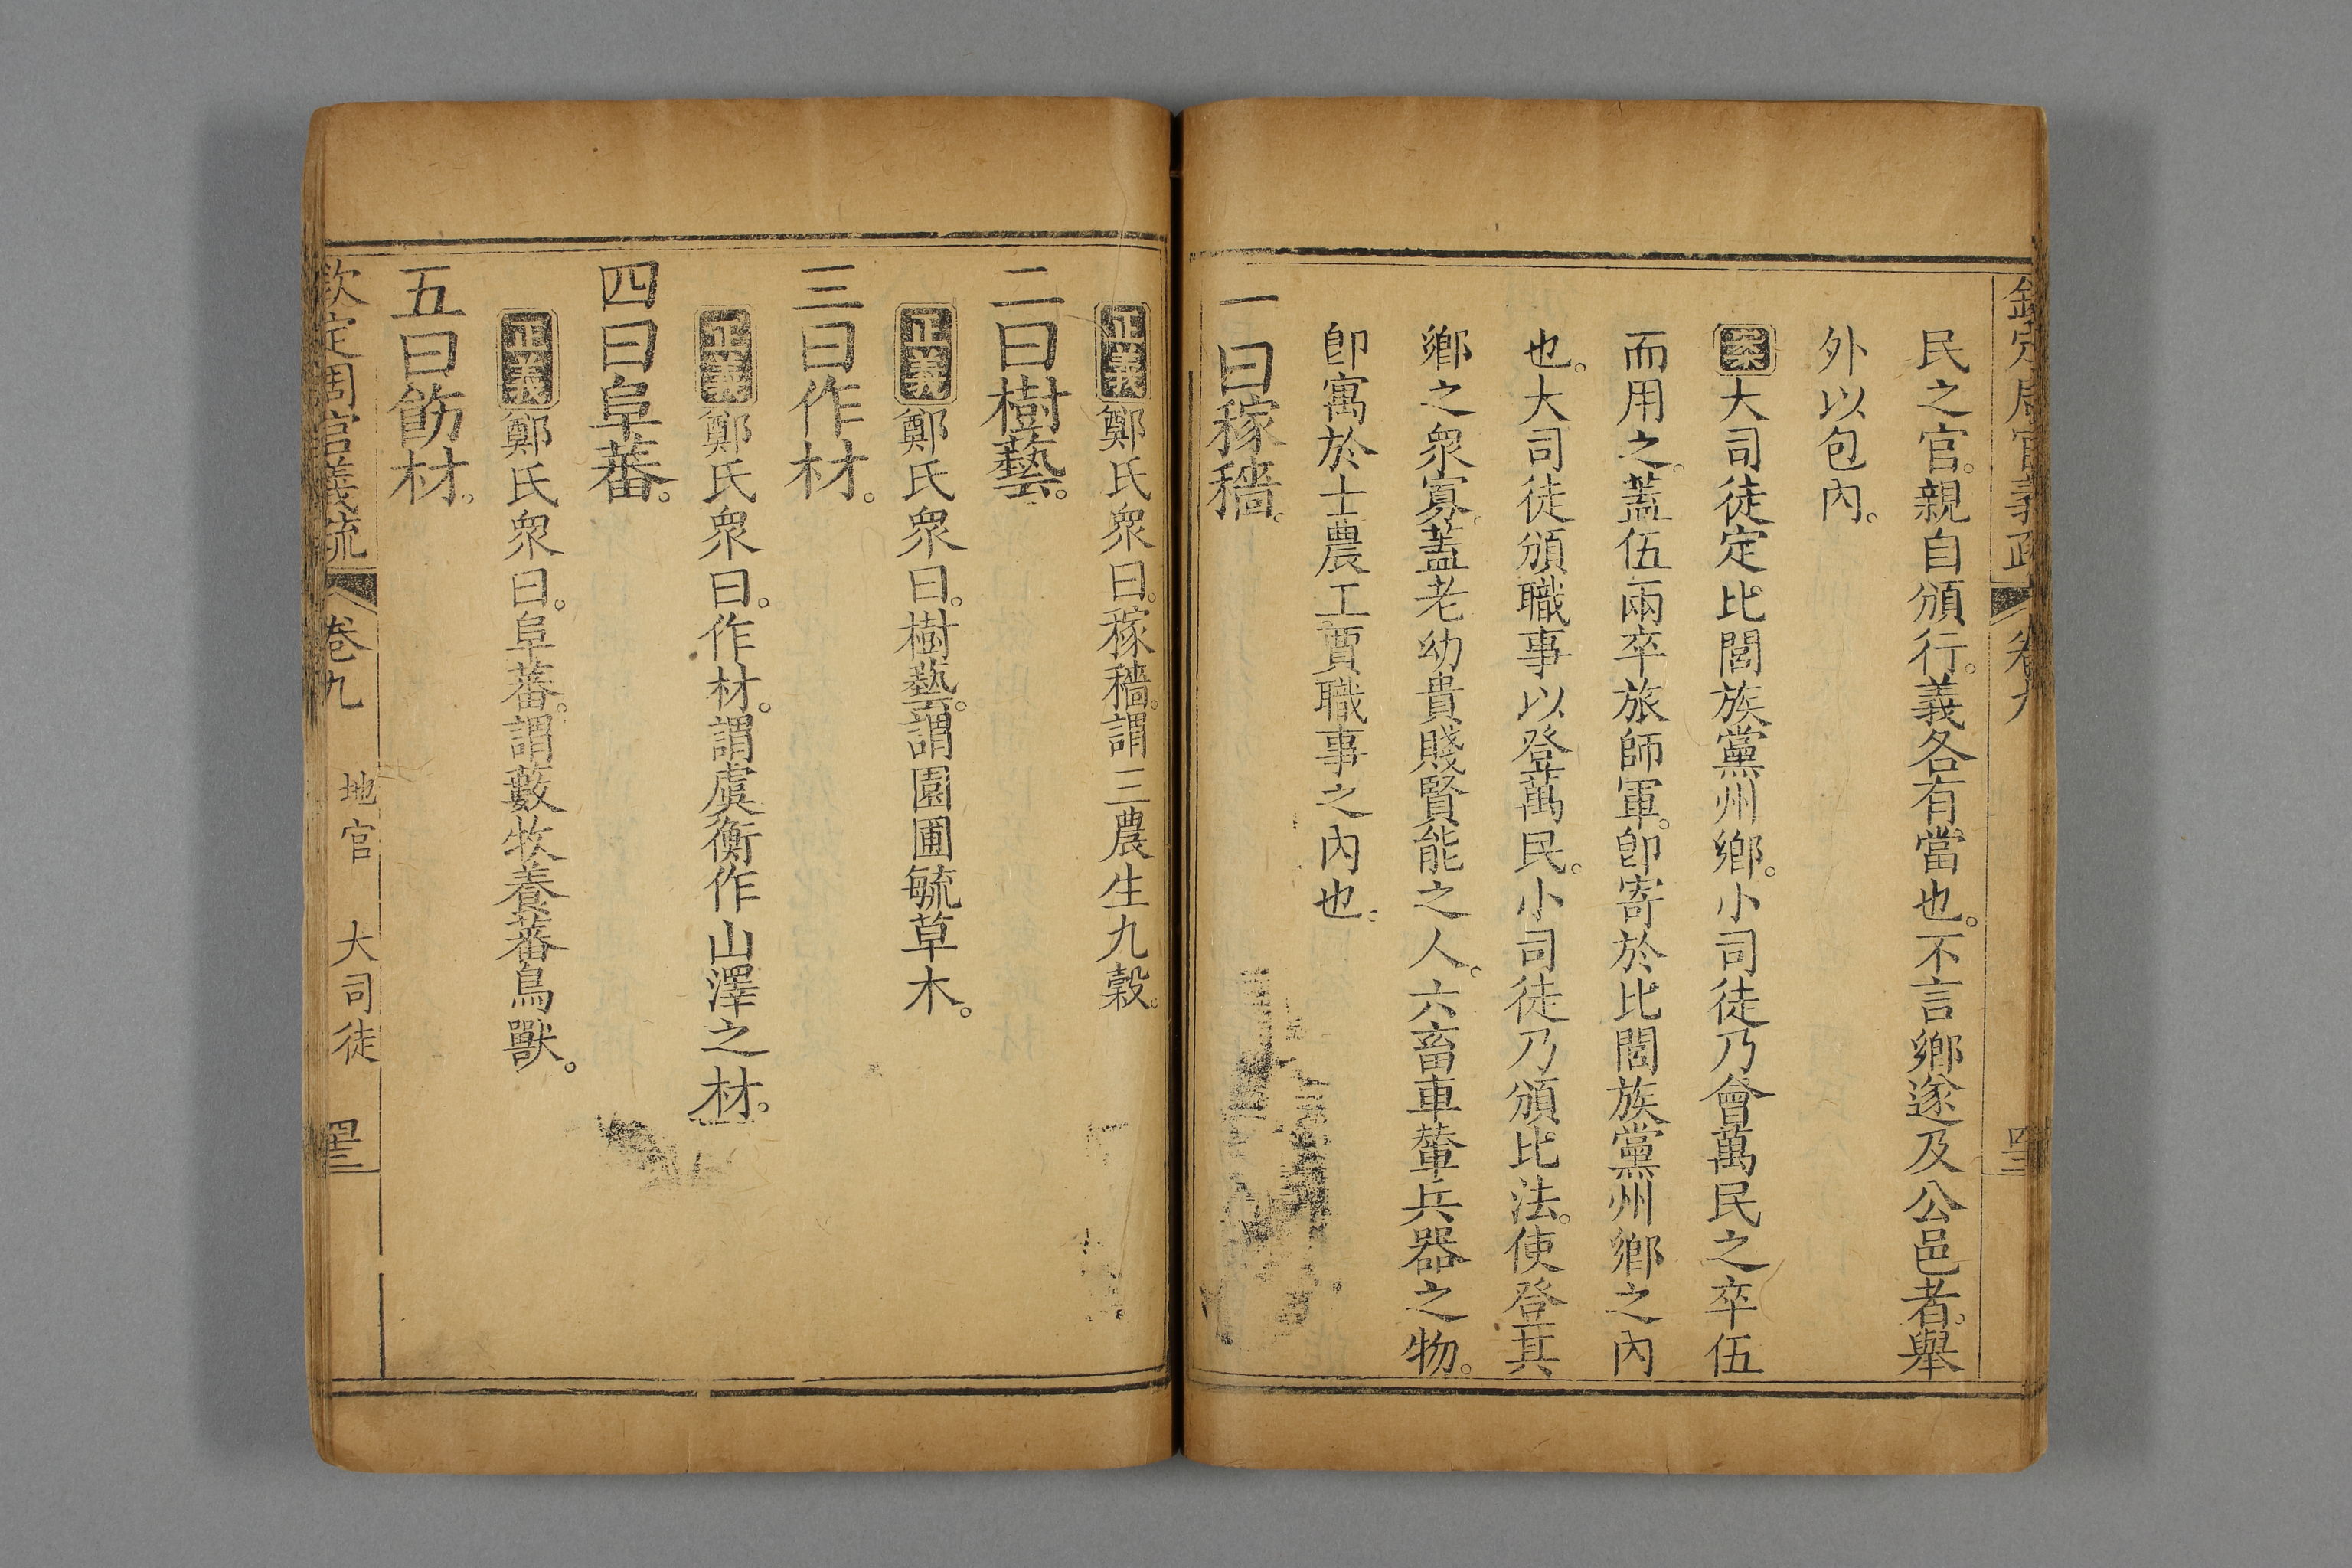 欽定周官義疏 卷九
民之官。親自頒行。義各有當也。不言鄉遂及公邑者。舉
外以包內。
案大司徒定比閭族黨州鄉。小司徒乃會萬民之卒伍
而用之。蓋伍兩卒旅師軍。卽寄於比閭族黨州鄉之內
也。大司徒頒職事以登萬民。小司徒乃頒比法。使登其
鄉之衆寡。蓋老幼貴賤賢能之人。六畜車輦兵器之物。
卽寓於士農工賈職事之內也。
一曰稼穡。
正義鄭氏衆曰。稼穡。謂三農生九穀。
二曰樹藝。
正義鄭氏衆曰。樹藝。謂園圃毓草木。
三曰作材。
正義鄭氏衆曰。作材。謂虞衡作山澤之材。
四曰阜蕃。
正義鄭氏衆曰。阜蕃。謂藪牧養蕃鳥獸。
五曰飭材。
欽定周官義疏 卷九 地官 大司徒